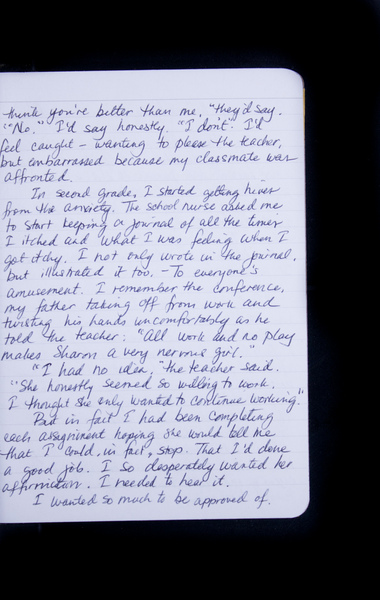 think you're better than me," they'd say.
"No." I'd say honestly. "I don't". I'd
feel caught – wanting to please the teacher,
but embarrassed because my classmate was
affronted.
In second grade, I started getting hives
from the anxiety. The school nurse asked me
to start keeping a journal of all the times
I itched and what I was feeling when I
got itchy. I not only wrote in the journal,
but illustrated it too. – To everyone's
amusement. I remember the conference,
my father taking off from work and
twisting his hands uncomfortably as he
told the teacher: "All work and no play
makes Sharon a very nervous girl."
"I had no idea," the teacher said.
"She honestly seemed so willing to work.
I thought she only wanted to continue working."
But in fact I had been completing
each assignment hoping she would tell me
that I could, in fact, stop. That I'd done
a good job. I so desperately wanted her
affirmation. I needed to hear it.
I wanted so much to be approved of.